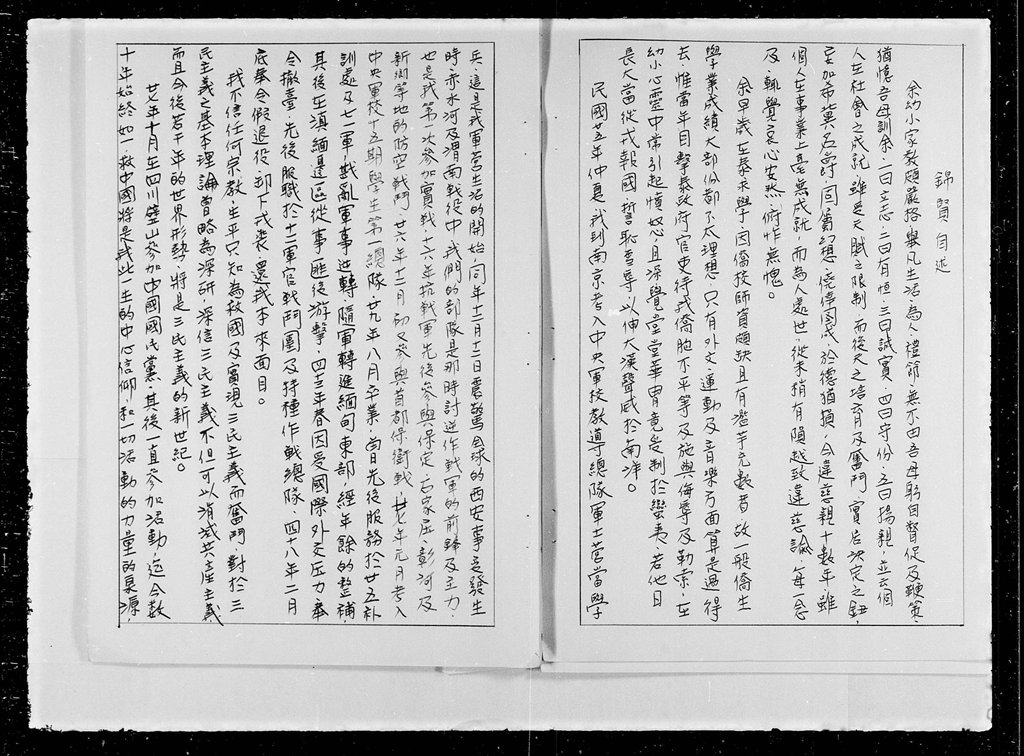 錦賢自述
余幼小家教頗嚴格，舉凡生活、為人、禮節，無不由吾母躬自督促及鞭策，
猶憶吾母訓余，一曰立志，二曰有恒，三曰誠實，四曰守份，五曰揚親，並云個
人在社會之成就，雖受天賦之限制，而後天之培育及奮鬥，實居決定之鈕，
至如希冀名爵，同屬幻想，僥倖圖成，於德猶損，今違慈親十數年，雖
個人在事業上毫無成就，而為人處世，從未稍有隕越致違慈諭，每一念
及，輒覺哀心安然，俯怍無愧。
余早歲在泰求學，因僑校師資頗缺且有濫竽充數者，故一般僑生
學業成績大部份都不太理想，只有外文、運動及音樂方面算是過得
去，惟當年目擊泰政府官吏待我僑胞不平等及施與侮辱及勒索，在
幼小心靈中常引起憤怒，且深覺堂堂華胄竟受制於蠻夷，若他日
長大當從戎報國，誓恥吾辱，以伸大漢聲威於南洋。
民國廿五年仲夏，我到南京考入中央軍校教導總隊軍士營當學
兵，這是我軍營生活的開始，同年十二月十二日震驚全球的西安事變發生
時，赤水河及渭南戰役中，我們的部隊是那時討逆作戰軍的前鋒及主力，
也是我第一次參加實戰，廿六年抗戰軍興先後參與保定、石家庄、彰河及
新鄉等地的防空戰鬥，廿六年十二月初又參與首都保衛戰，廿七年元月考入
中央軍校十五期學生第一總隊，廿九年八月卒業，當日先後服務於廿五補
訓處及七一軍，戡亂軍事逆轉，隨軍轉進緬甸東部，經年餘的整補，
其後在滇緬邊區從事「匪後游擊」，四三年春因受國際外交压力，奉
令撤臺，先後服職於十二軍官戰鬥團及特種作戰總隊，四十八年二月
底奉令假退役，卸下戎裘，還我本來面目。
我不信任何宗教，生平只知為救國及實現三民主義而奮鬥，對於三
民主義之基本理論，曾略為深研，深信三民主義不但可以消滅共產主義
而且今後若干年的世界形勢，將是三民主義的新世紀。
廿七年十月在四川璧山參加中國國民黨，其後一直參加活動，迄今數
十年始終如一，救中國將是我此一生的中心信仰和一切活動的力量的泉源，